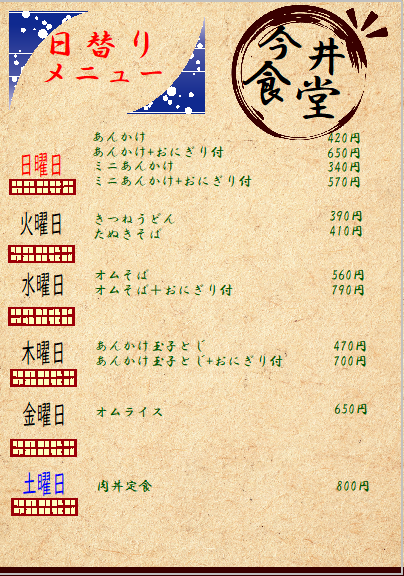 日替り
メニュー
今井
食堂
日曜日
あんかけ 420円
あんかけ+おにぎり付 650円
ミニあんかけ 340円
ミニあんかけ+おにぎり付 570円
火曜日
きつねうどん 390円
たぬきそば 410円
水曜日
オムそば 560円
オムそば＋おにぎり付 790円
木曜日
あんかけ玉子とじ 470円
あんかけ玉子とじ+おにぎり付 700円
金曜日
オムライス 650円
土曜日
肉丼定食 800円